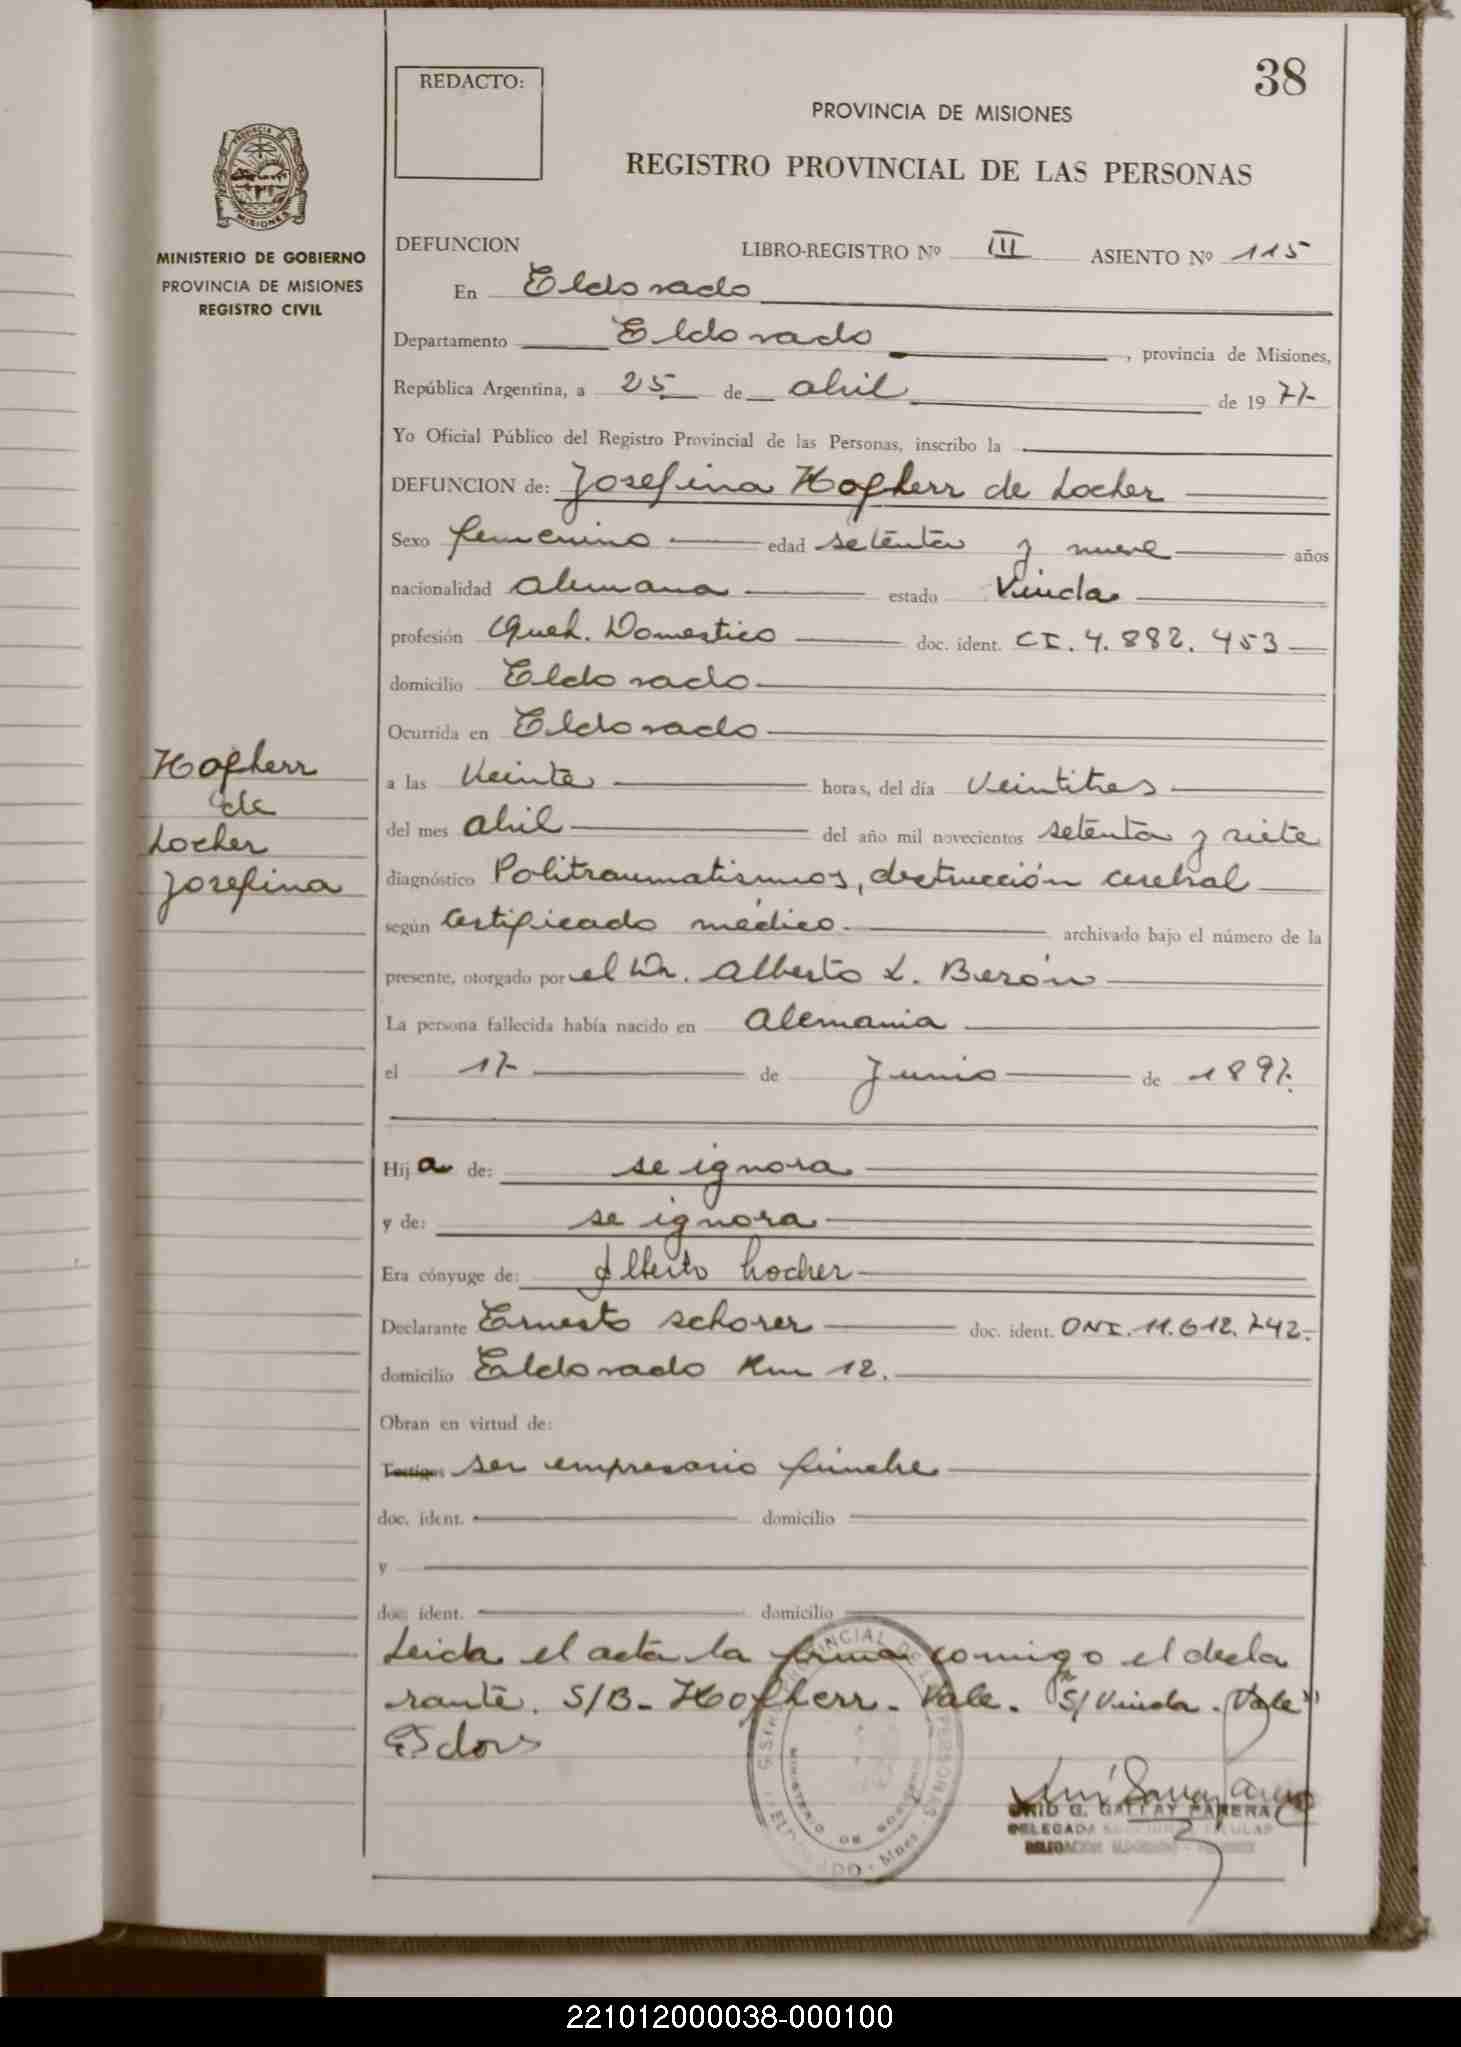 38
REDACTO:
PROVINCIA DE MISIONES
REGISTRO PROVINCIAL DE LAS PERSONAS
MISIONES
MINISTERIO DE GOBIERNO
PROVINCIA DE MISIONES
REGISTRO CIVIL
DEFUNCION LIBRO-REGISTRO Nº III ASIENTO Nº 115
En Eldorado
Departamento Eldorado, provincia de Misiones,
República Argentina, a 25 de abril de 1977
Yo Oficial Público del Registro Provincial de las Personas, inscribo la
DEFUNCION de: Josefina Hofherr de Locher
Sexo femenino edad setenta y nueve años
nacionalidad alemana estado Viuda
profesión Queh. Domestico doc. ident. CI. 4.882.453
domicilio Eldorado
Ocurrida en Eldorado
Hofherr
de
Locher
Josefina
a las Veinte horas, del día Veintitres
del mes abril del año mil novecientos setenta y siete
diagnóstico Politraumatismos, destrucción cerebral
según Certificado médico. archivado bajo el número de la
presente, otorgado por el Dr. Alberto L. Berón
La persona fallecida había nacido en Alemania
el 17 de Junio de 1897.
Hij a de: se ignora
y de: se ignora
Era cónyuge de: Alberto Locher
Declarante Ernesto Schorer doc. ident. DNI. 11.612.742.
domicilio Eldorado Km 12.
Obran en virtud de:
Testigos ser empresario fúnebre
doc. ident. domicilio
y
doc. ident. domicilio
Leida el acta la firma comigo el decla
rante. S/B- Hofherr. Vale. S/ Viuda. Vale
GALLAY PARERA
DELEGADA
221012000038-000100